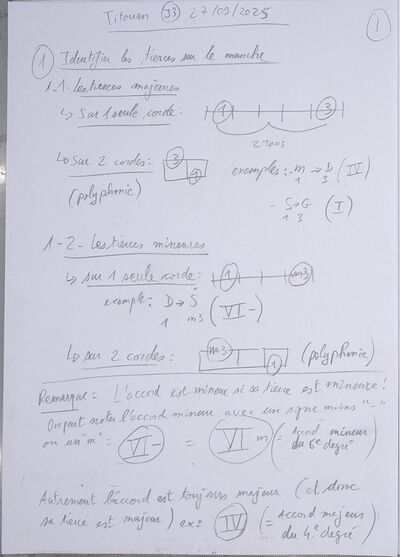 Titouan J3 27/09/2025
1
1 Identifier les tierces sur le manche
1-1-Les tierces majeures
↳ Sur 1 seule corde: 1 3
2 TONS
↳ Sur 2 cordes: 3 1 exemples: - m → D (IV)
1 3
(polyphonie) - S → G (I)
1 3
1-2-Les tierces mineures
↳ sur 1 seule corde: 1 m3
exemple: D → S (VI-)
1 m3
↳ sur 2 cordes: m3 1 (polyphonie)
Remarque: L'accord est mineur si sa tierce est mineure!
On peut noter l'accord mineur avec un signe moins "-"
ou un "m": VI- = VI m (= Accord mineur
du 6e degré
Autrement l'accord est toujours majeur (et donc
sa tierce est majeur) ex: IV (= Accord majeur
du 4e degré